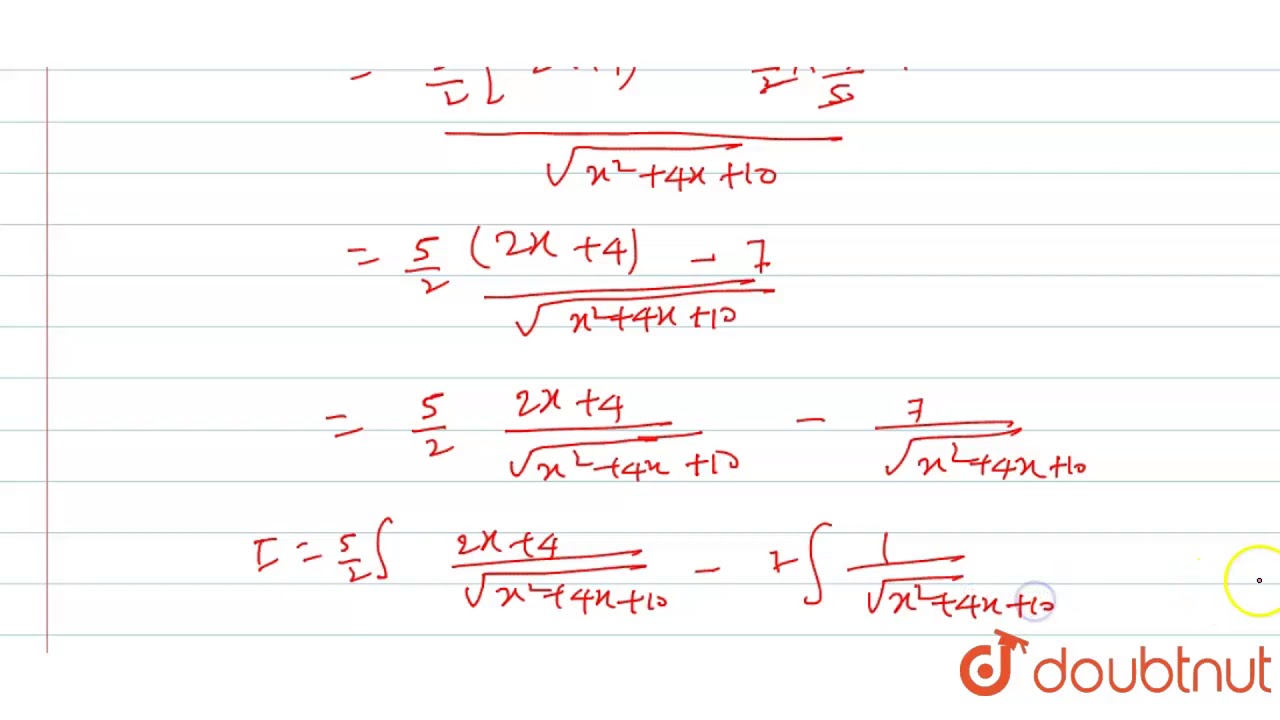 √x²+4x+10
= 5/2 (2x+4) - 7
√x²+4x+10
= 5/2 2x+4/√x²+4x+10 - 7/√x²+4x+10
I = 5/2 ∫ 2x+4/√x²+4x+10 - 7 ∫ 1/√x²+4x+10
doubtnut